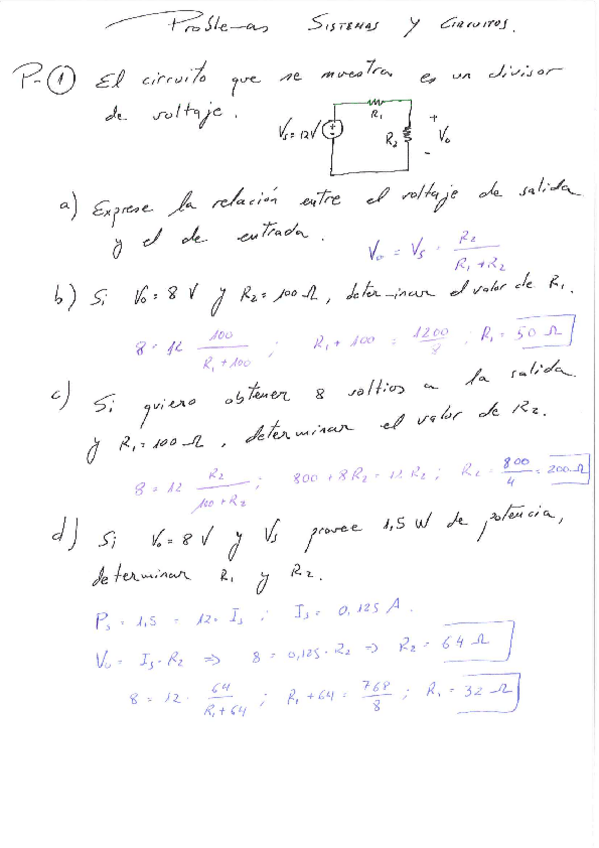 Problemas Sistemas y Circuitos.
P-1 El circuito que se muestra es un divisor
de voltaje.
Vs=12V + - R1 R2 + Vo -
a) Exprese la relación entre el voltaje de salida
y el de entrada. Vo = Vs · R2 / (R1+R2)
b) Si Vo=8 V y R2=100 Ω, determinar el valor de R1.
8 = 12 100 / (R1+100) ; R1+100 = 1200 / 8 ; R1 = 50 Ω
c) Si quiero obtener 8 voltios a la salida
y R1=100 Ω, determinar el valor de R2.
8 = 12 R2 / (100+R2) ; 800+8R2 = 12 R2 ; R2 = 800 / 4 = 200 Ω
d) Si Vo=8 V y Vs provee 1,5 W de potencia,
determinar R1 y R2.
Ps = 1,5 = 12· Is ; Is = 0,125 A.
Vo = Is·R2 => 8 = 0,125·R2 => R2 = 64 Ω
8 = 12 · 64 / (R1+64) ; R1+64 = 768 / 8 ; R1 = 32 Ω